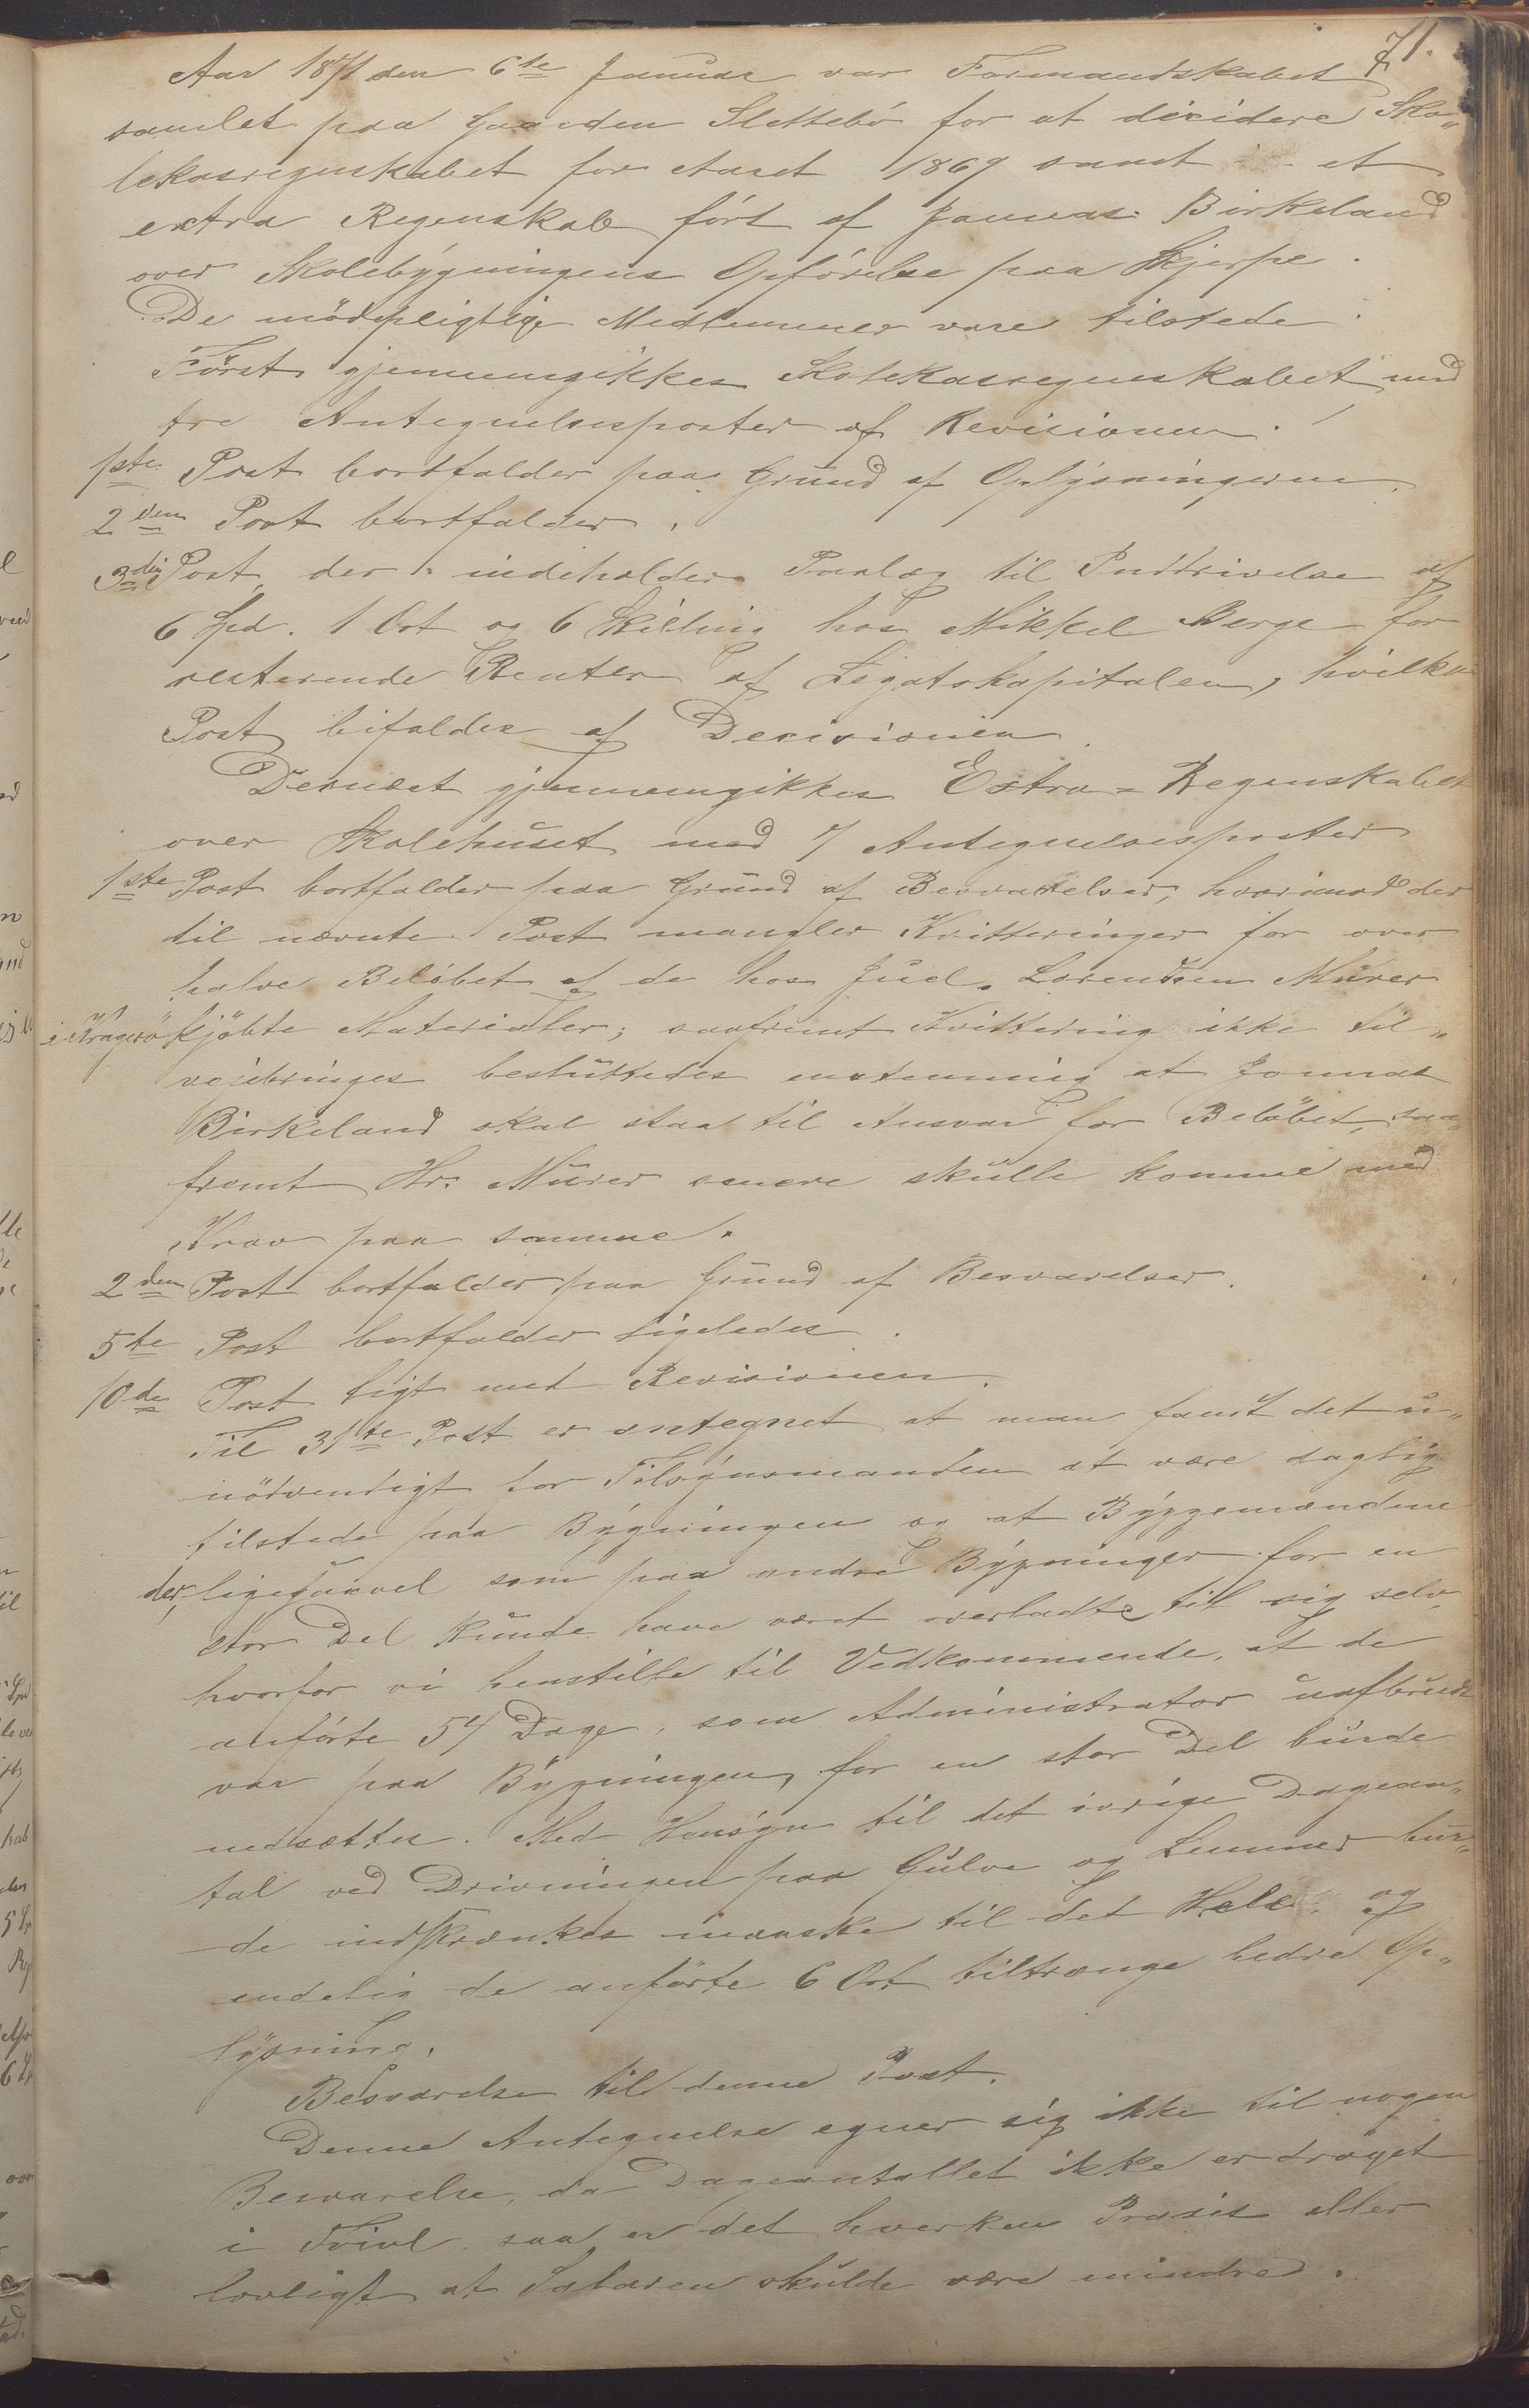 71.
Aar 1871 den 6te Januar var Formandskabet
samlet paa Gaarden Slettebö for at decidere Sko„
lekasregnskabet for Aaret 1869 samt et
extra Regenskab fört af Jonnas Birkeland
over Skolebygningens Opförelse paa Skjerpe.
De mödepligtige Medlemmer vare tilstede.
Först gjennemgikkes Skolekasregenskabet med
tre Antegnelsesposter af Revisionen.
1ste Post bortfalder paa Grund af Oplysningerne.
2den Post bortfalder.
3die Post, der indeholder Paalæg til Inddrivelse af
6 Spd. 1 Ort og 6 Skilling hos Mikkel Berge for
resterende Renter af Legatskapitalen, hvilken
Post bifaldes af Decisionen.
Dernæst gjennemgikkes Extra-Regenskabet
over Skolehuset med 7 Antegnelsesposter
1ste Post bortfalder paa Grund af Besvarelser, hvorimod der
til nævnte Post mangler Kvitteringer for over
halve Belöbet af de hos Juel. Lorendsen Murer
i Kragerö kjöbte Materialer; saafremt Kvittering ikke til„
vejebringes besluttedes enstemmig at Jonnas
Birkeland skal staa til Ansvar for Belöbet, saa„
fremt Hr. Murer senere skulle komme med
Krav paa samme.
2den Post bortfalder paa Grund af Besvarelser.
5te Post bortfalder ligeledes.
10de Post ligt med Revisionen.
Til 31te Post er antegnet at man fandt det u„
nödvendigt for Tilsynsmanden at være daglig
tilstede paa Bygningen og at Byggemændene
der, ligesaavel som paa andre Bygninger for en
stor Del kunde have været overladte til sig selv,
hvorfor vi henstille til Vedkommende, at de
anförte 57 Dage, som Administrator uafbrudt
var paa Bygningen, for en stor Del burde
nedsættes. Med Hensyn til det övrige Dagean„
tal ved Drivningen paa Gulve og Lemmer bur„
de indskrænkes maaske til det Hele, og
endelig de anförte 6 Ort tiltrænge bedre Op„
lysning.
Besvarelse til denne Post.
Denne Antegnelse egner sig ikke til nogen
Besvarelse, da Dageantallet ikke er draget
i Tvivl, saa er det hverken Praxis eller
lovligt at Salæren skulde være mindre.